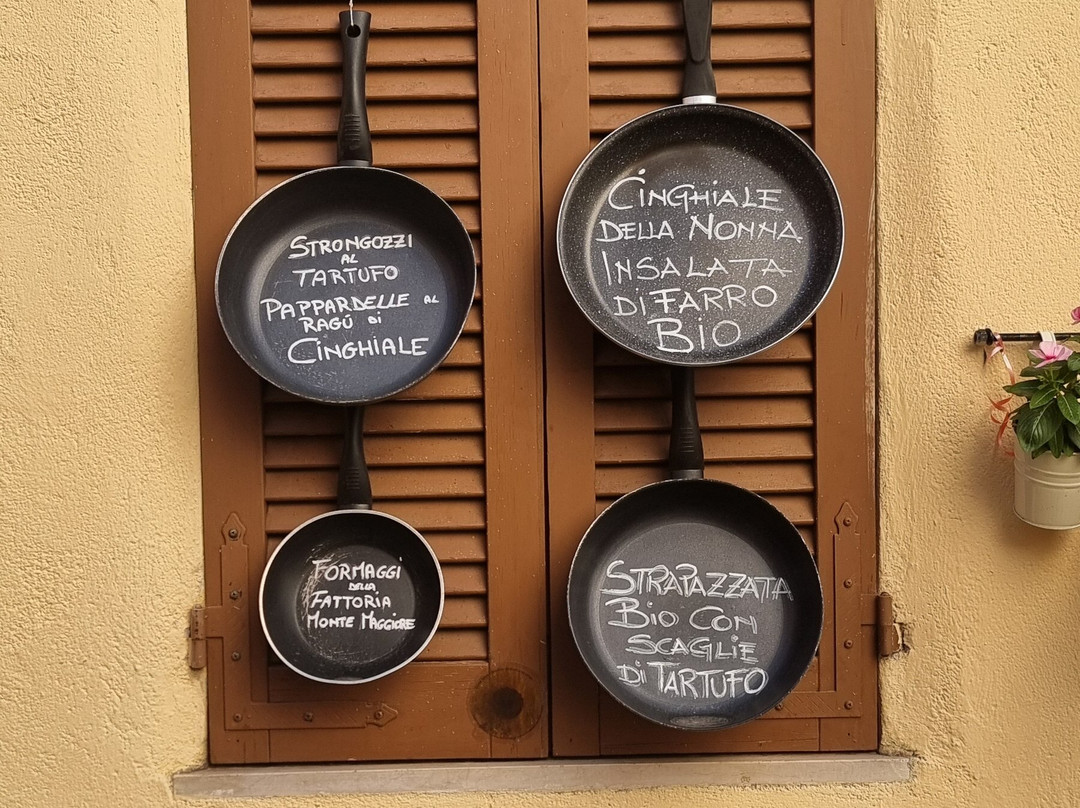 STRONGOZZI
AL
TARTUFO
PAPPARDELLE AL
RAGÚ DI
CINGHIALE
CINGHIALE
DELLA NONNA
INSALATA
DI FARRO
BIO
FORMAGGI
DELLA
FATTORIA
MONTE MAGGIORE
STRAPAZZATA
BIO CON
SCAGLIE
DI TARTUFO